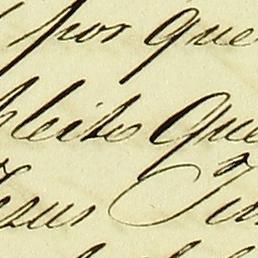 por que
pleito que
Jesus